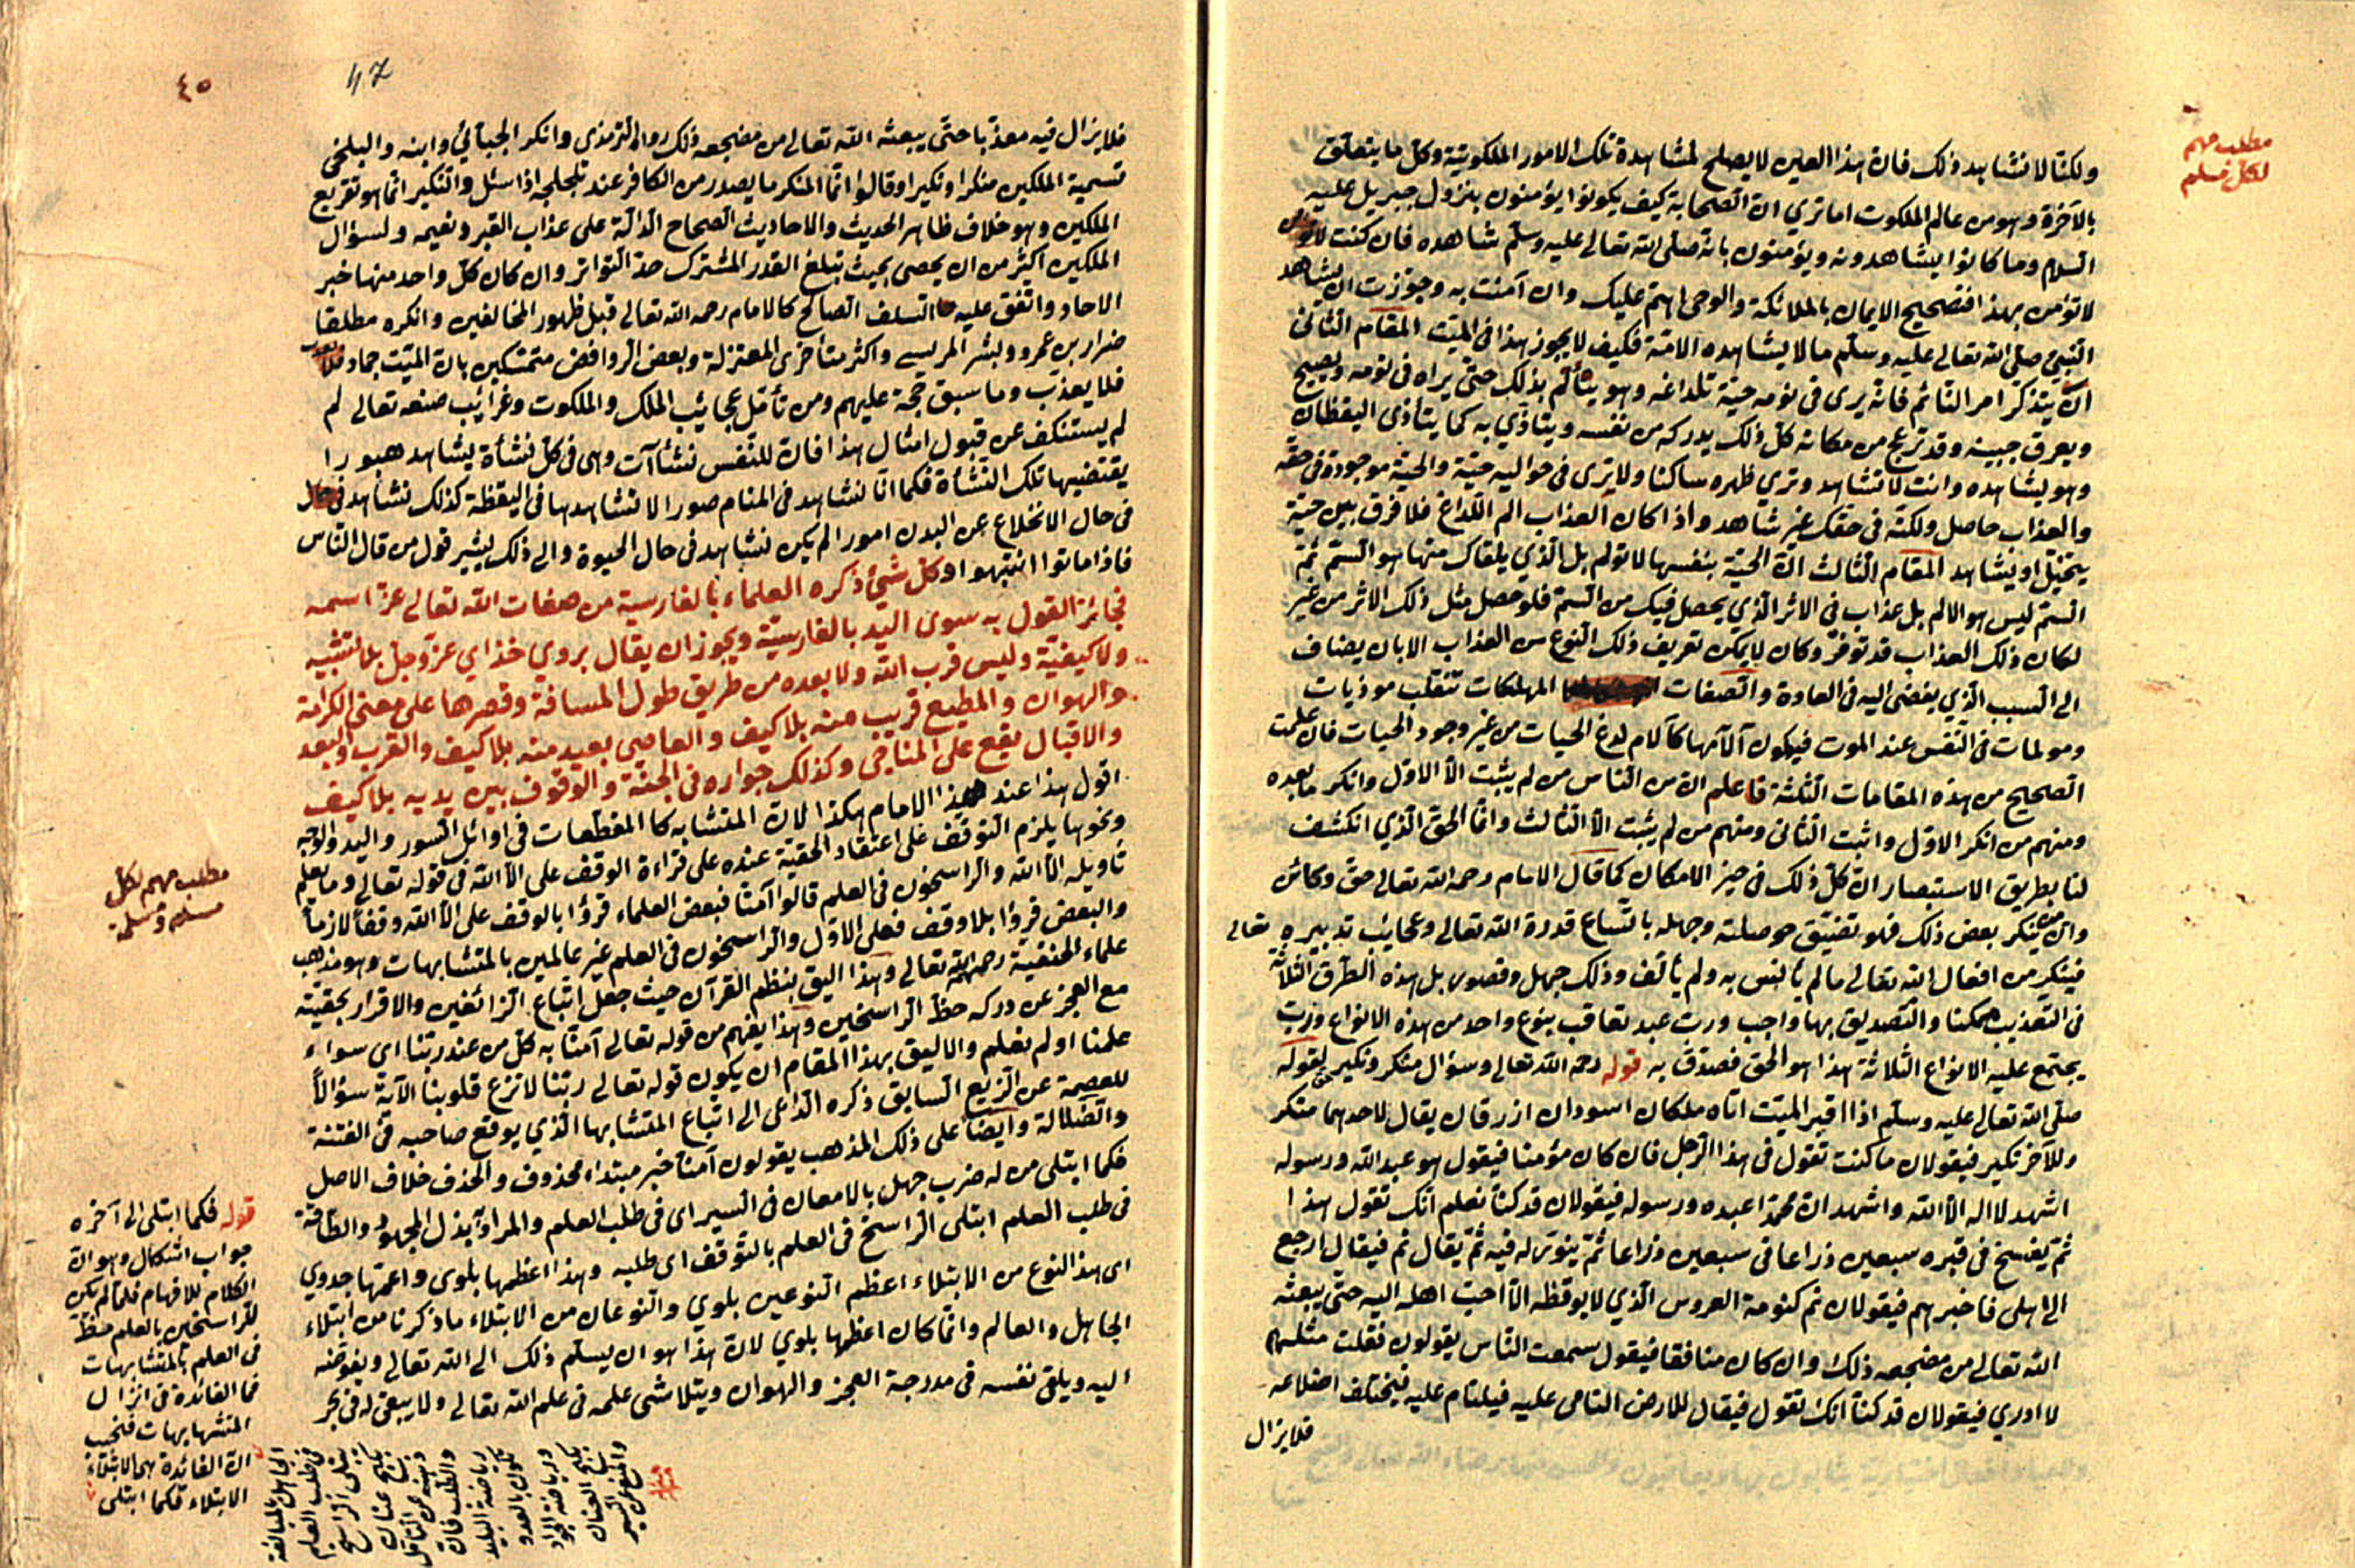 مطلب مهم
لكل مسلم
ولكنا لا نشاهد ذلك فان هذا العين لا يصلح لمشاهدة تلك الامور الملكوتية وكل ما يتعلق
بالآخرة وهو من عالم الملكوت اما تري ان الصحابة كيف يكونوا يؤمنون بنزول جبريل عليه
السلام وما كانوا يشاهدونه ويؤمنون بانه صلى الله تعالى عليه وسلم شاهده فان كنت
لا تؤمن بهذا فتصحيح الايمان بالملائكة والوحى اهم عليك وان آمنت به وجوزت ان يشاهد
النبى صلى الله تعالى عليه وسلم ما لا يشاهده الامة فكيف لا يجوز هذا فى الميت المقام الثانى
ان يتذكر امر النائم فانه يرى فى نومه حية تلداغه وهو يتألم بذلك حتى يراه فى نومه ويصيح
ويعرق جبينه وقد ترعج من مكانه كل ذلك يدركه من نفسه ويتاذي به كما يتأذى اليقظان
وهو يشاهده وانت لا تشاهد وتري ظهره ساكنا ولا يرى فى حواليه حية والحية موجودة فى حقه
والعذاب حاصل ولكنه فى حقك غير شاهد واذا كان العذاب الم اللذاغ فلا فرق بين حية
يتخيل او يشاهد المقام الثالث ان الحية بنفسها لا تولم بل الذي يلقاك منها هو السم ثم
السم ليس هو الالم بل عذاب فى الاثر الذي يحصل فيك من السم فلو حصل مثل ذلك الاثر من غير
لكان ذلك العذاب قد توفر وكان لا يمكن تعريف ذلك النوع من العذاب الا بان يضاف
الى السبب الذي يفضى اليه فى العادة والصفات المهلكات تنقلب موذيات
ومولمات فى النفس عند الموت فيكون آلامها كآلام لدغ الحيات من غير وجود الحيات فان علمت
الصحيح من هذه المقامات الثلثة فاعلم ان من الناس من لم يثبت الا الاول وانكر ما بعده
ومنهم من انكر الاول واثبت الثانى ومنهم من لم يثبت الا الثالث وانما الحق الذي انكشف
لنا بطريق الاستبصار ان كل ذلك فى حيز الامكان كما قال الامام رحمه الله تعالى حق وكائن
وان من ينكر بعض ذلك فهو تضيق حوصلته وجهله باتساع قدرة الله تعالى وعجايب تدبيره تعالى
فينكر من افعال الله تعالى ما لم يأنس به ولم يألف وذلك جهل وقصور بل هذه الطرق الثلاثة
فى التعذيب ممكنا والتصديق بها واجب ورب عبد تعاقب بنوع واحد من هذه الانواع ورب
يجتمع عليه الانواع الثلاثة هذا هو الحق فصدق به قوله رحمه الله تعالى وسؤال منكر ونكير لقوله
صلى الله تعالى عليه وسلم اذا اقبر الميت اتاه ملكان اسودان ازرقان يقال لاحدهما منكر
وللآخر نكير فيقولان ما كنت تقول فى هذا الرجل فان كان مؤمنا فيقول هو عبد الله ورسوله
اشهد لا اله الا الله واشهد ان محمدا عبده ورسوله فيقولان قد كنا نعلم انك تقول هذا
ثم يفسخ فى قبره سبعين ذراعا فى سبعين ذراعا ثم ينور له فيه ثم يقال نم فيقال ارجع
الى اهلى فاخبرهم فيقولان نم كنومة العروس الذي لا يوقظه الا احب اهله اليه حتى يبعثه
الله تعالى من مضجعه ذلك وان كان منافقا فيقول سمعت الناس يقولون فقلت مثلهم
لا ادري فيقولان قد كنا انك تقول فيقال للارض التامى عليه فيلتام عليه فيختلف اضلاعه
فلا يزال
٤٥
47
فلا يزال فيه معذبا حتى يبعثه الله تعالى من مضجعه ذلك رواه الترمذى وانكر الجبائي وابنه والبلخى
تسمية الملكين منكرا ونكيرا وقالوا انما المنكر ما يصدر من الكافر عند تلجلجه اذا سئل والنكير انما هو تقريع
الملكين وهو خلاف ظاهر الحديث والاحاديث الصحاح الدالة على عذاب القبر ونعيمه ولسؤال
الملكين اكثر من ان يحصى بحيث تبلغ القدر المشترك حد التواتر وان كان كل واحد منها خبر
الاحاد واتفق عليه السلف الصالح كالامام رحمه الله تعالى قبل ظهور المخالفين وانكره مطلقا
ضرار بن عمرو وبشر المريسى واكثر متأخرى المعتزلة وبعض الروافض متمسكين بان الميت جماد
فلا يعذب وما سبق حجة عليهم ومن تأمل عجايب الملك والملكوت وغرائب صنعه تعالى لم
لم يستنكف عن قبول امثال هذا فان للنفس نشاآت وهى فى كل نشأة يشاهد صورا
يقتضيها تلك النشأة فكما انا نشاهد فى المنام صورا لا نشاهدها فى اليقظة كذلك نشاهد
فى حال الانخلاع عن البدن امورا لم يكن نشاهد فى حال الحيوة والى ذلك يشير قول من قال الناس
فاذا ماتوا انتبهوا وكل شئ ذكره العلماء بالفارسية من صفات الله تعالى عز اسمه
فجائز القول به سوى اليد بالفارسية ويجوز ان يقال بروي خذاي عز وجل بلا تشبيه
ولا كيفية وليس قرب الله ولا بعده من طريق طول المسافة وقصرها على معنى الكرامة
والهوان والمطيع قريب منه بلا كيف والعاصى بعيد منه بلا كيف والقرب والبعد
والاقبال يقع على المناجى وكذلك جواره فى الجنة والوقوف بين يديه بلا كيف
اقول هذا عند هذا الامام هكذا لان المتشابه كالمقطعات فى اوائل السور واليد والوجه
ونحوها يلزم التوقف على اعتقاد الحقية عنده على قراءة الوقف على الا الله فى قوله تعالى وما يعلم
تاويله الا الله والراسخون فى العلم قالوا آمنا فبعض العلماء قرؤا بالوقف على الا الله وقفا لازما
والبعض قرؤا بلا وقف فعلى الاول والراسخون فى العلم غير عالمين بالمتشابهات وهو مذهب
علماء الحنفية رحمهم الله تعالى وهذا اليق بنظم القرآن حيث جعل اتباع الزائغين والاقرار بحقيته
مع العجز عن دركه حظ الراسخين وهذا يفهم من قوله تعالى آمنا به كل من عند ربنا اى سواء
علمنا او لم نعلم والاليق بهذا المقام ان يكون قوله تعالى ربنا لا تزغ قلوبنا الآية سؤالا
للعصمة عن الزيغ السابق ذكره الداعى الى اتباع المتشابها الذي يوقع صاحبه فى الفتنة
والضلالة وايضا على ذلك المذهب يقولون آمنا خبر مبتداء محذوف والحذف خلاف الاصل
فكما ابتلى من له ضرب جهل بالامعان فى السير اى فى طلب العلم والمراد بذل المجهود والطاقة
فى طلب العلم ابتلى الراسخ فى العلم بالتوقف اى طلبه وهذا اعظمها بلوى واعمها جدوي
اى هذا النوع من الابتلاء اعظم النوعين بلوي والنوعان من الابتلاء ما ذكرنا من ابتلاء
الجاهل والعالم وانما كان اعظمها بلوي لان هذا هو ان يسلم ذلك الى الله تعالى ويفوضه
اليه ويلقى نفسه فى مدرجة العجز والهوان ويتلاشى علمه فى علم الله تعالى ولا يبقى له فى بحر
مطلب مهم لكل
مسلم ومسلمة
قوله فكما ابتلى الى آخره
جواب اشكال وهو ان
الكلام للافهام فلما لم يكن
للراسخين بالعلم حظ
فى العلم بالمتشابهات
فما الفائدة فى انزال
المتشابهات فنجيب
ان الفائدة هى الابتلاء
الابتلاء فكما ابتلى
الجاهل بالمبالغة
فى طلب العلم
ابتلى الراسخ
بكبح عنان
ذهنه عن التأمل
والطلب فان
رياضة البليد
يكون بالعدو
ورياضة الجواد
بكبح العنان
والمنع عن السير